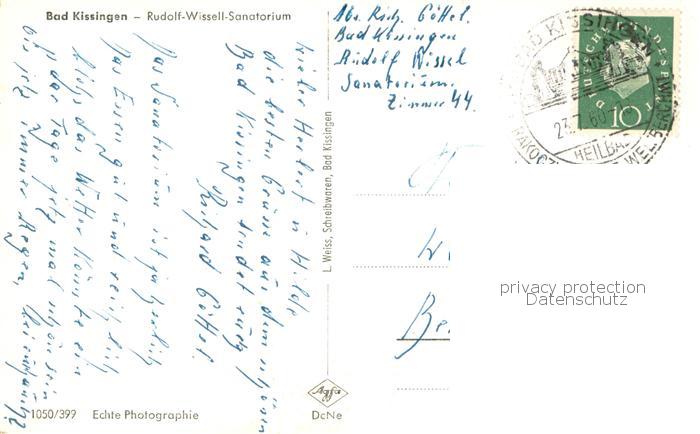 Bad Kissingen – Rudolf-Wissell-Sanatorium
Abs. Rich. Göttel.
Bad Kissingen
Rudolf Wissel
Sanatorium.
Zimmer 44.
BAD KISSINGEN
23.7.60
HEILBAD
RAKOCZY
10
Lieber Herbert u Hilde
die besten Grüße aus dem schönen
Bad Kissingen sendet euch
Richard Göttel.
Das Sanatorium ist herrlich
Das Essen gut und reichlich
bloß das Wetter könnte ein
paar Tage jetz mal schön sein
bis jetz immer Regen,
L. Weiss, Schreibwaren, Bad Kissingen
privacy protection
Datenschutz
1050/399 Echte Photographie
Agfa
DcNe